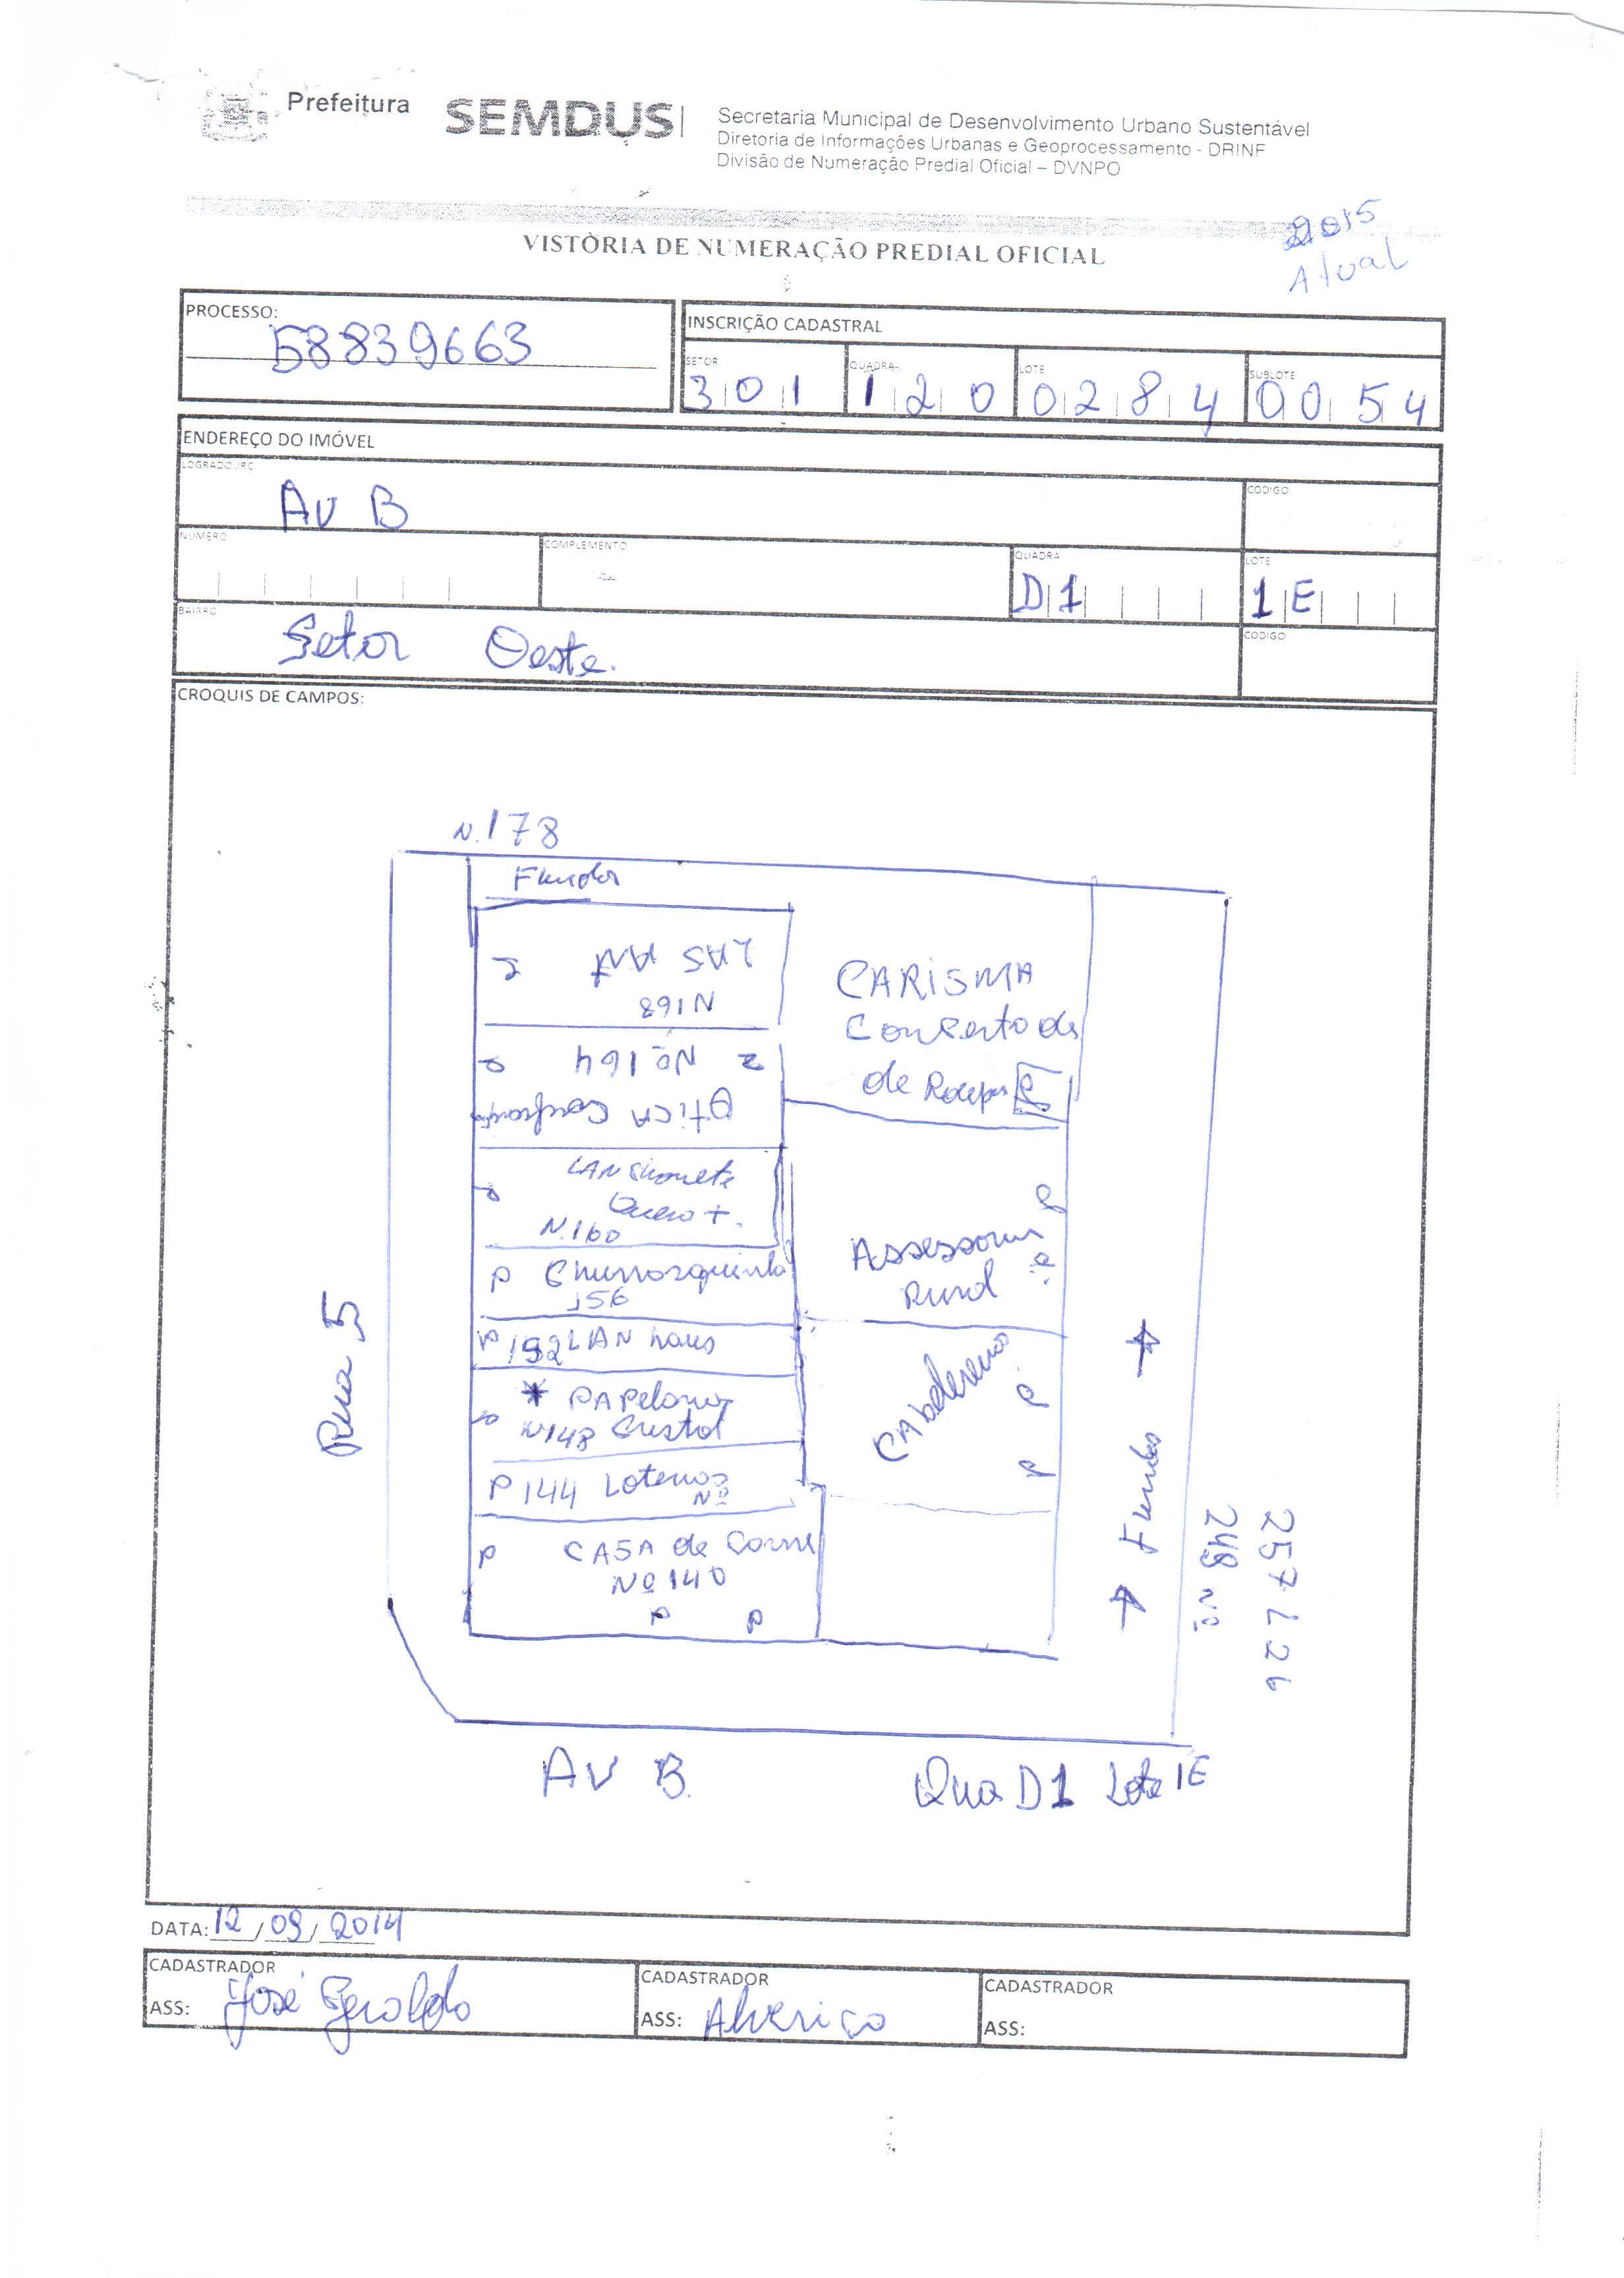 Prefeitura
SEMDUS
Secretaria Municipal de Desenvolvimento Urbano Sustentável
Diretoria de Informações Urbanas e Geoprocessamento - DRINF
Divisão de Numeração Predial Oficial – DVNPO
VISTORIA DE NUMERAÇÃO PREDIAL OFICIAL
2015
Atual
PROCESSO:
58839663
INSCRIÇÃO CADASTRAL
SETOR QUADRA LOTE SUBLOTE
301 120 0284 0054
ENDEREÇO DO IMÓVEL
LOGRADOURO CODIGO
Av B
NUMERO COMPLEMENTO QUADRA LOTE
D1 1E
BAIRRO CODIGO
Setor Oeste.
CROQUIS DE CAMPOS:
N. 178
Fundos
LAS
N168
CARISMA
Conserto de
de
Nº 164
Otica
LANchonete
Quero +.
N.160
P Churrasquinho
156
Assessoria
Rural
P 152 LAN haus
Rua 5
* PAPelaria
N148 Cristal
P 144 Loterias
Nº
P CASA de Carne
Nº 140
P P
Fundos
248 Nº
257 L 26
AV B.
Qua D1 Lote 1E
DATA: 12/09/2014
CADASTRADOR CADASTRADOR CADASTRADOR
ASS: José Geraldo ASS: ASS: